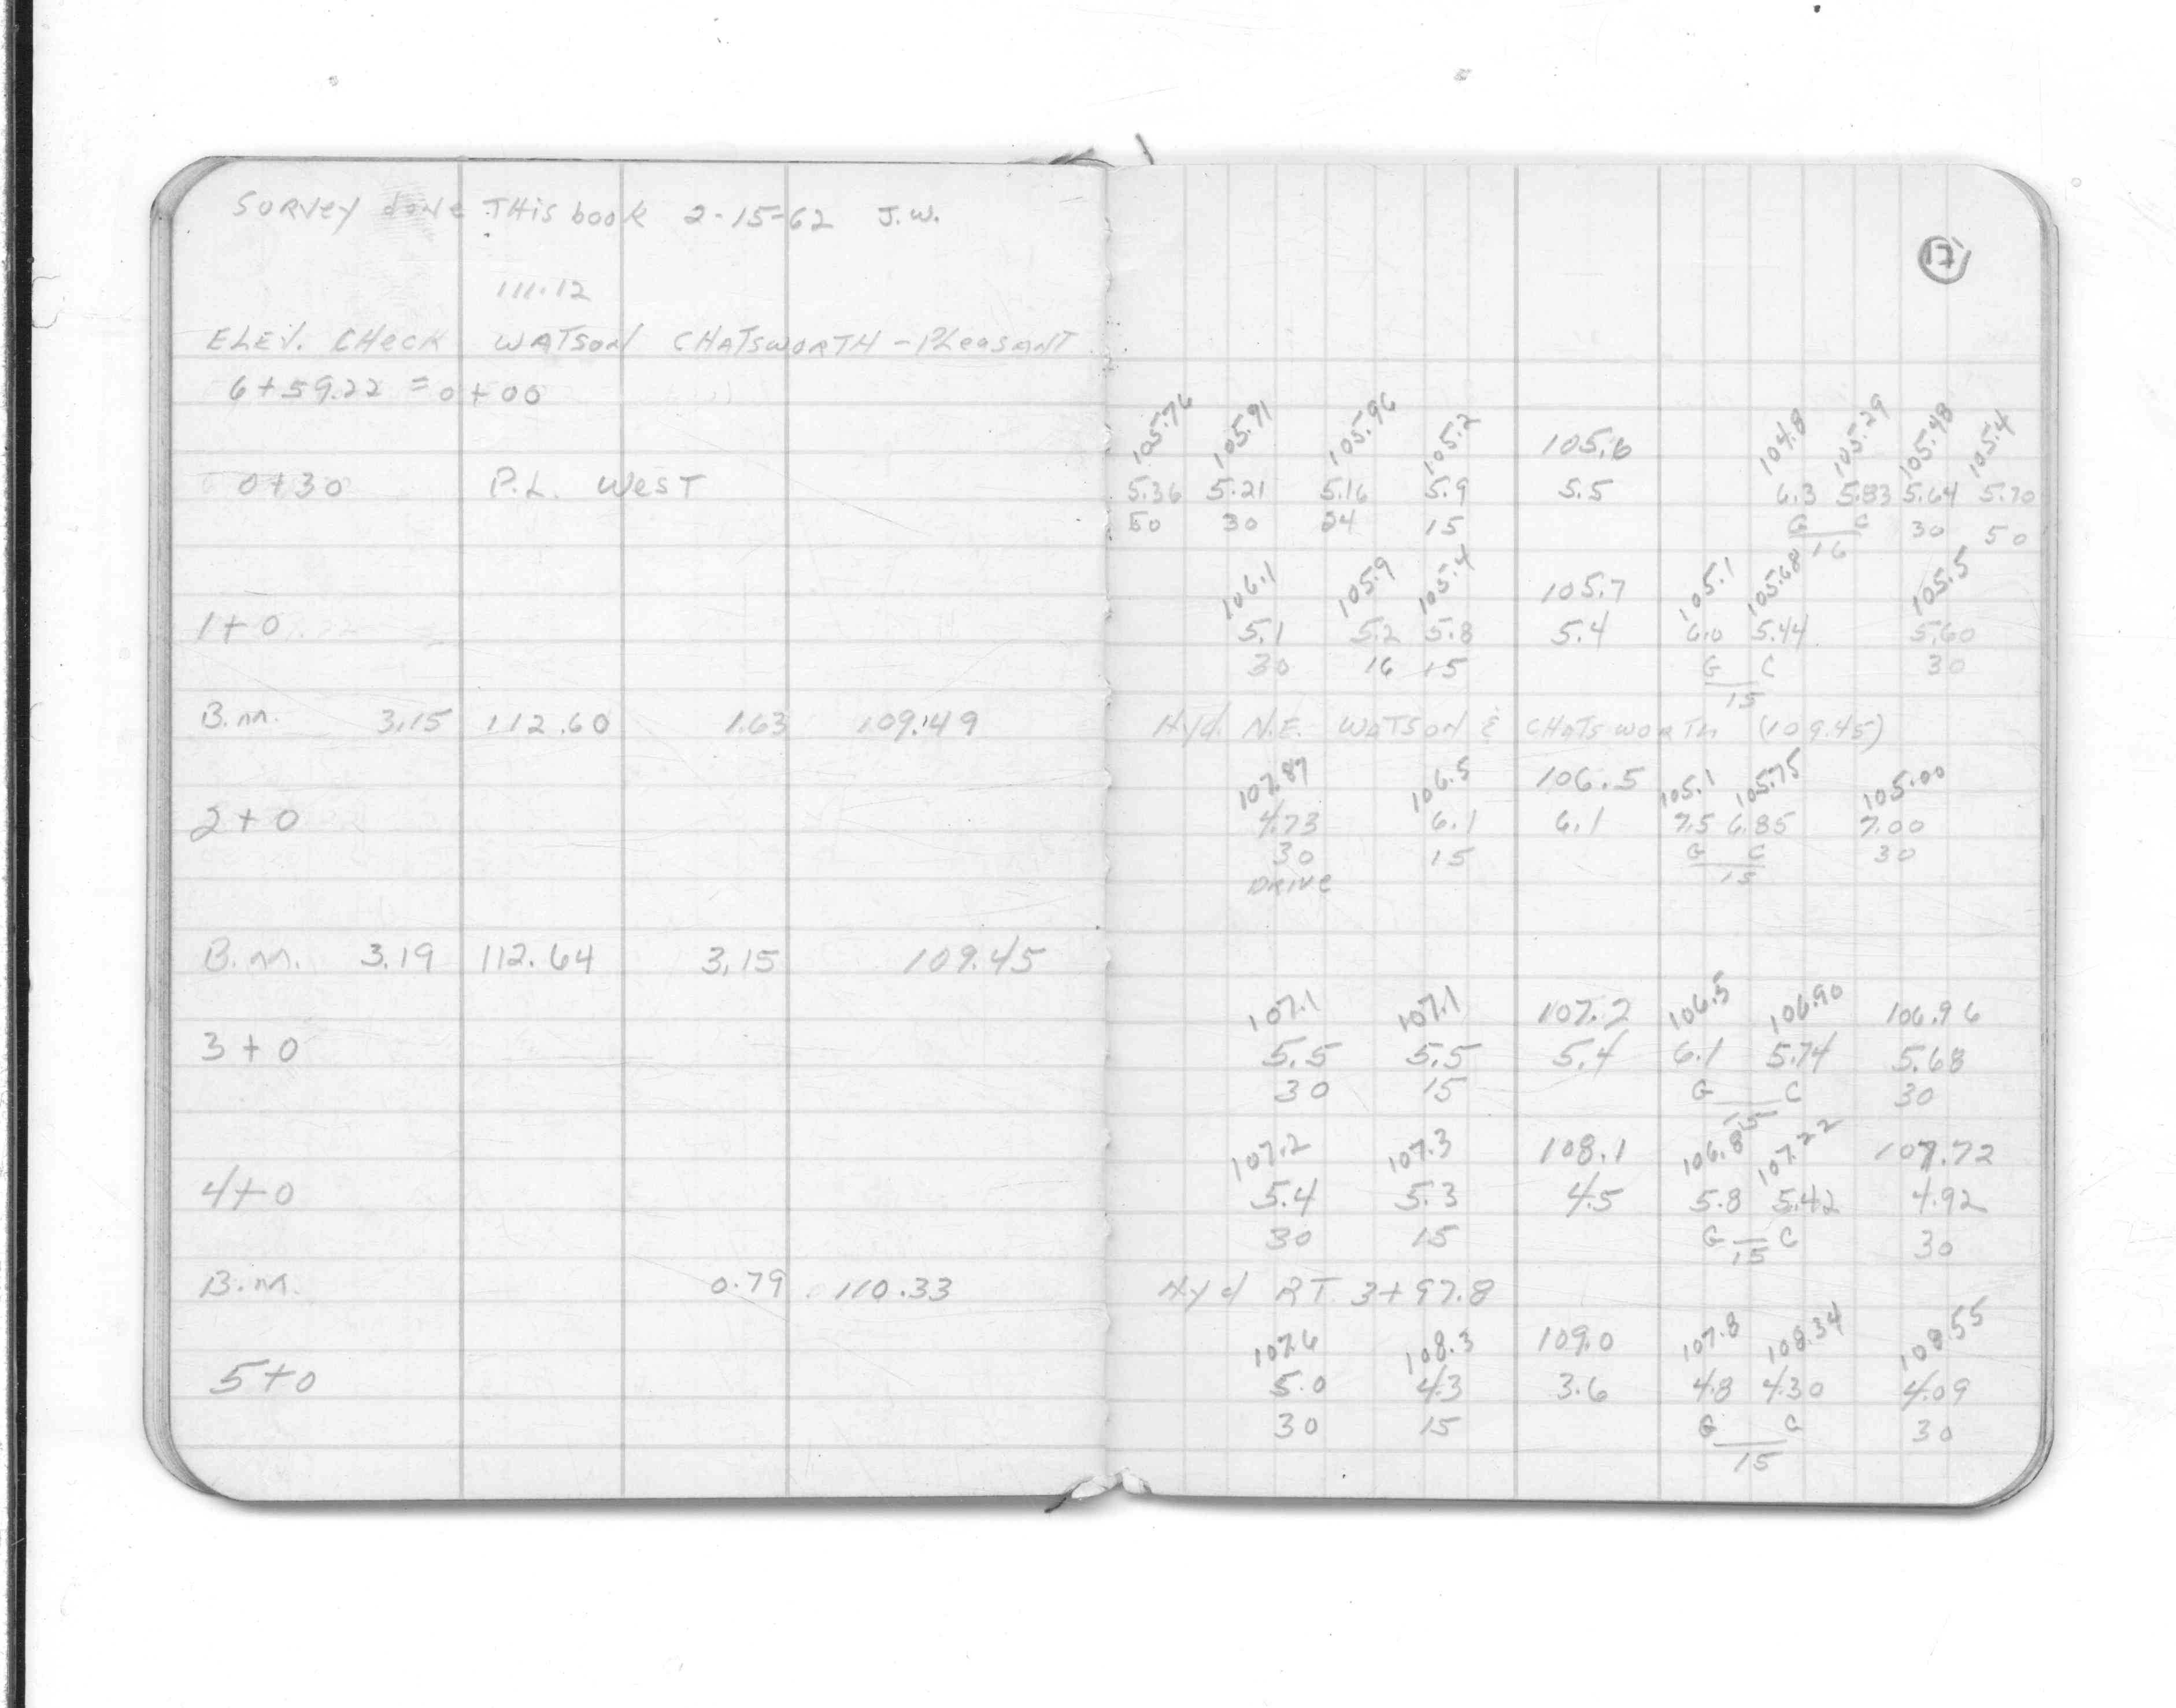 SURVEY done THis book 2-15-62 J.W.
111.12
ELEV. CHECK WATSON CHATSWORTH - PLeasANT
6+59.22 = 0+00
0+30 P.L. WesT
1+0
B.M. 3.15 112.60 1.63 109.49
2+0
B.M. 3.19 112.64 3.15 109.45
3+0
4+0
B.M. 0.79 110.33
5+0
17
105.76 105.91 105.96 105.2 105.6 104.8 105.29 105.48 105.4
5.36 5.21 5.16 5.9 5.5 6.3 5.83 5.64 5.70
50 30 24 15 G C 30 50
16
106.1 105.9 105.4 105.7 105.1 105.68 105.5
5.1 5.2 5.8 5.4 6.0 5.44 5.60
30 16 15 G C 30
15
Hyd. N.E. WATSON & CHATSWORTH (109.45)
107.87 106.5 106.5 105.1 105.75 105.00
4.73 6.1 6.1 7.5 6.85 7.00
30 15 G C 30
DRIVe 15
107.1 107.1 107.2 106.5 106.90 106.96
5.5 5.5 5.4 6.1 5.74 5.68
30 15 G C 30
15
107.2 107.3 108.1 106.8 107.22 107.72
5.4 5.3 4.5 5.8 5.42 4.92
30 15 G C 30
15
Hyd RT. 3+97.8
107.6 108.3 109.0 107.8 108.34 108.55
5.0 4.3 3.6 4.8 4.30 4.09
30 15 G C 30
15